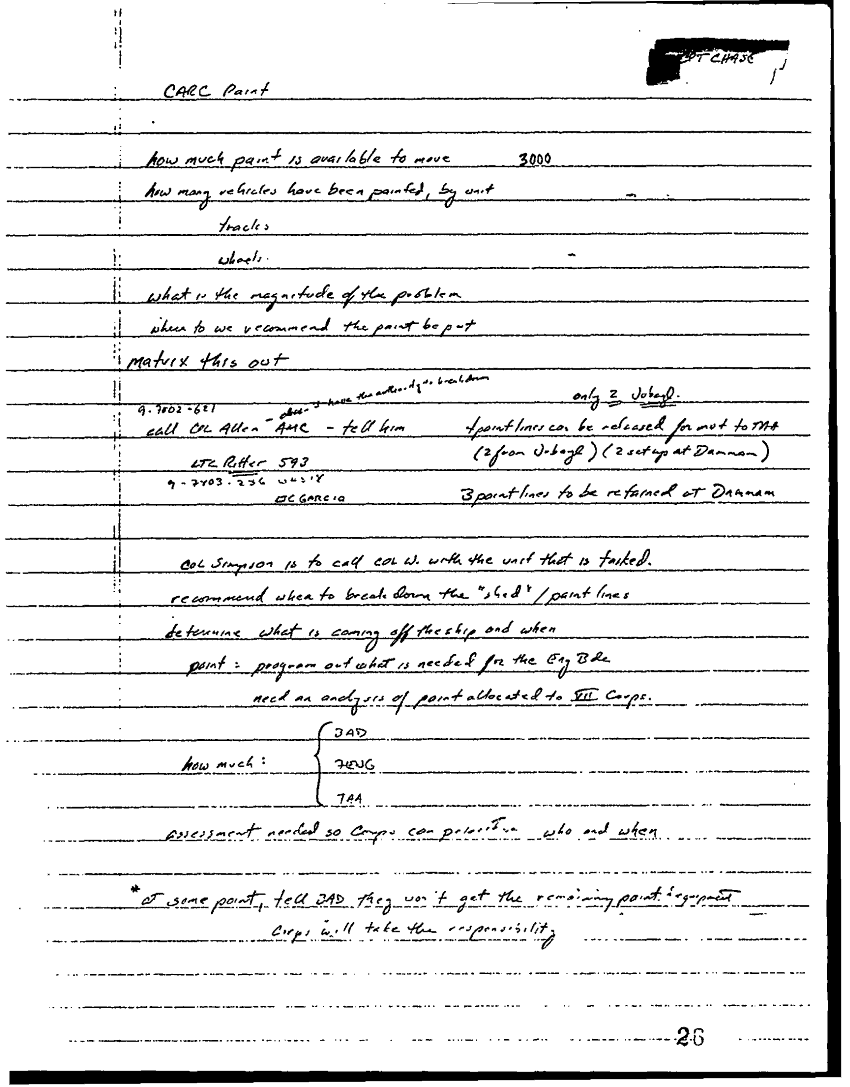 CPT CHASE
CARC Paint
how much paint is available to move 3000
how many vehicles have been painted, by unit
tracks
wheels.
what is the magnitude of the problem
where to we recommend the paint be put
matrix this out
have the authority to breakdown
only 2 Jubayl.
9-7002-621
call COL Allen - AMC - tell him
4 paint lines can be released for mvt to TAA
LTC Ritter 593
(2 from Jubayl) (2 set up at Dammam)
9-7803-236
LTC GARCIA
3 paint lines to be retained at Dammam
COL Simpson is to call COL W. with the unit that is tasked.
recommend when to break down the "shed" / paint lines
determine what is coming off the ship and when
paint: program out what is needed for the Eng Bde
need an analysis of paint allocated to VII Corps.
3AD
how much: 7ENG
TAA
assessment needed so Corps can prioritize who and when
* at some point, tell 3AD they won't get the remaining paint & equipment
Corps will take the responsibility
26